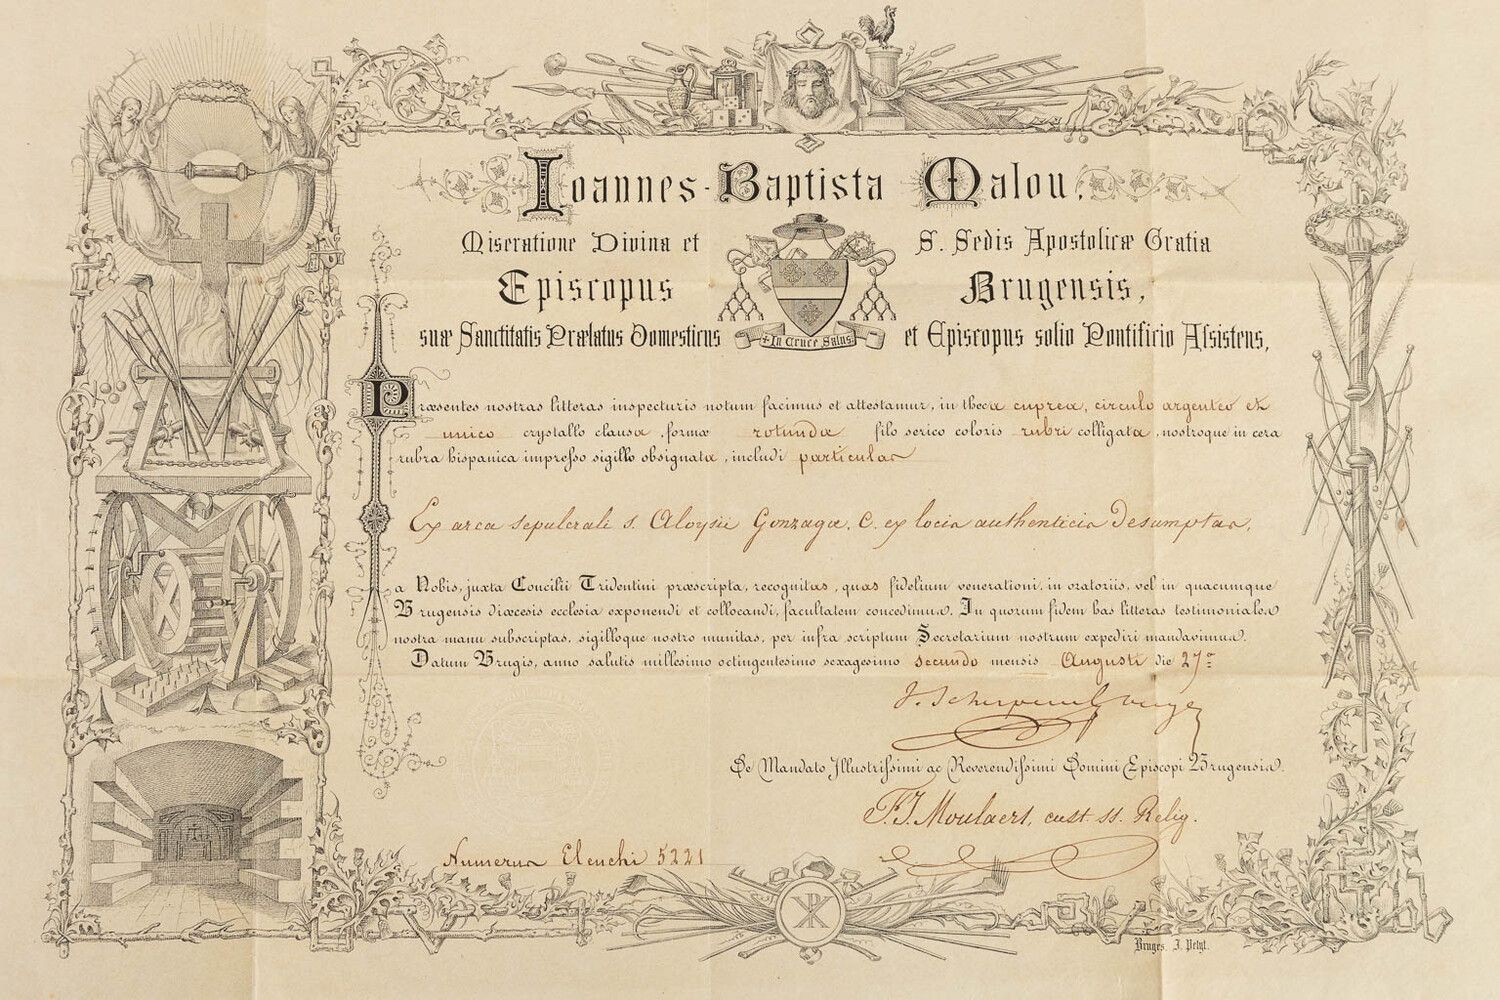 Ioannes-Baptista Malou,
Miseratione Divina et S. Sedis Apostolicæ Gratia
Episcopus Brugensis,
suæ Sanctitatis Prælatus Domesticus et Episcopus solio Pontificio Assistens,
+ In Cruce Salus
Præsentes nostras litteras inspecturis notum facimus et attestamur, in theca cuprea, circulo argenteo et
unico crystallo clausa, formæ rotundæ filo serico coloris rubri colligata, nostroque in cera
rubra hispanica impresso sigillo obsignata, includi particulas
Ex arca sepulcrali s. Aloysii Gonzagæ, C. ex locis authenticis desumptas,
a Nobis, juxta Concilii Tridentini præscripta, recognitas, quas fidelium venerationi, in oratoriis, vel in quacumque
Brugensis diœcesis ecclesia exponendi et collocandi, facultatem concedimus. In quorum fidem has litteras testimoniales
nostra manu subscriptas, sigilloque nostro munitas, per infra scriptum Secretarium nostrum expediri mandavimus.
Datum Brugis, anno salutis millesimo octingentesimo sexagesimo secundo mensis Augusti die 27ª
De Mandato Illustrissimi ac Reverendissimi Domini Episcopi Brugensis.
F.J. Moulaert, cust. ss. Relig.
Numerus Elenchi 5221
Bruges. J. Petyt.